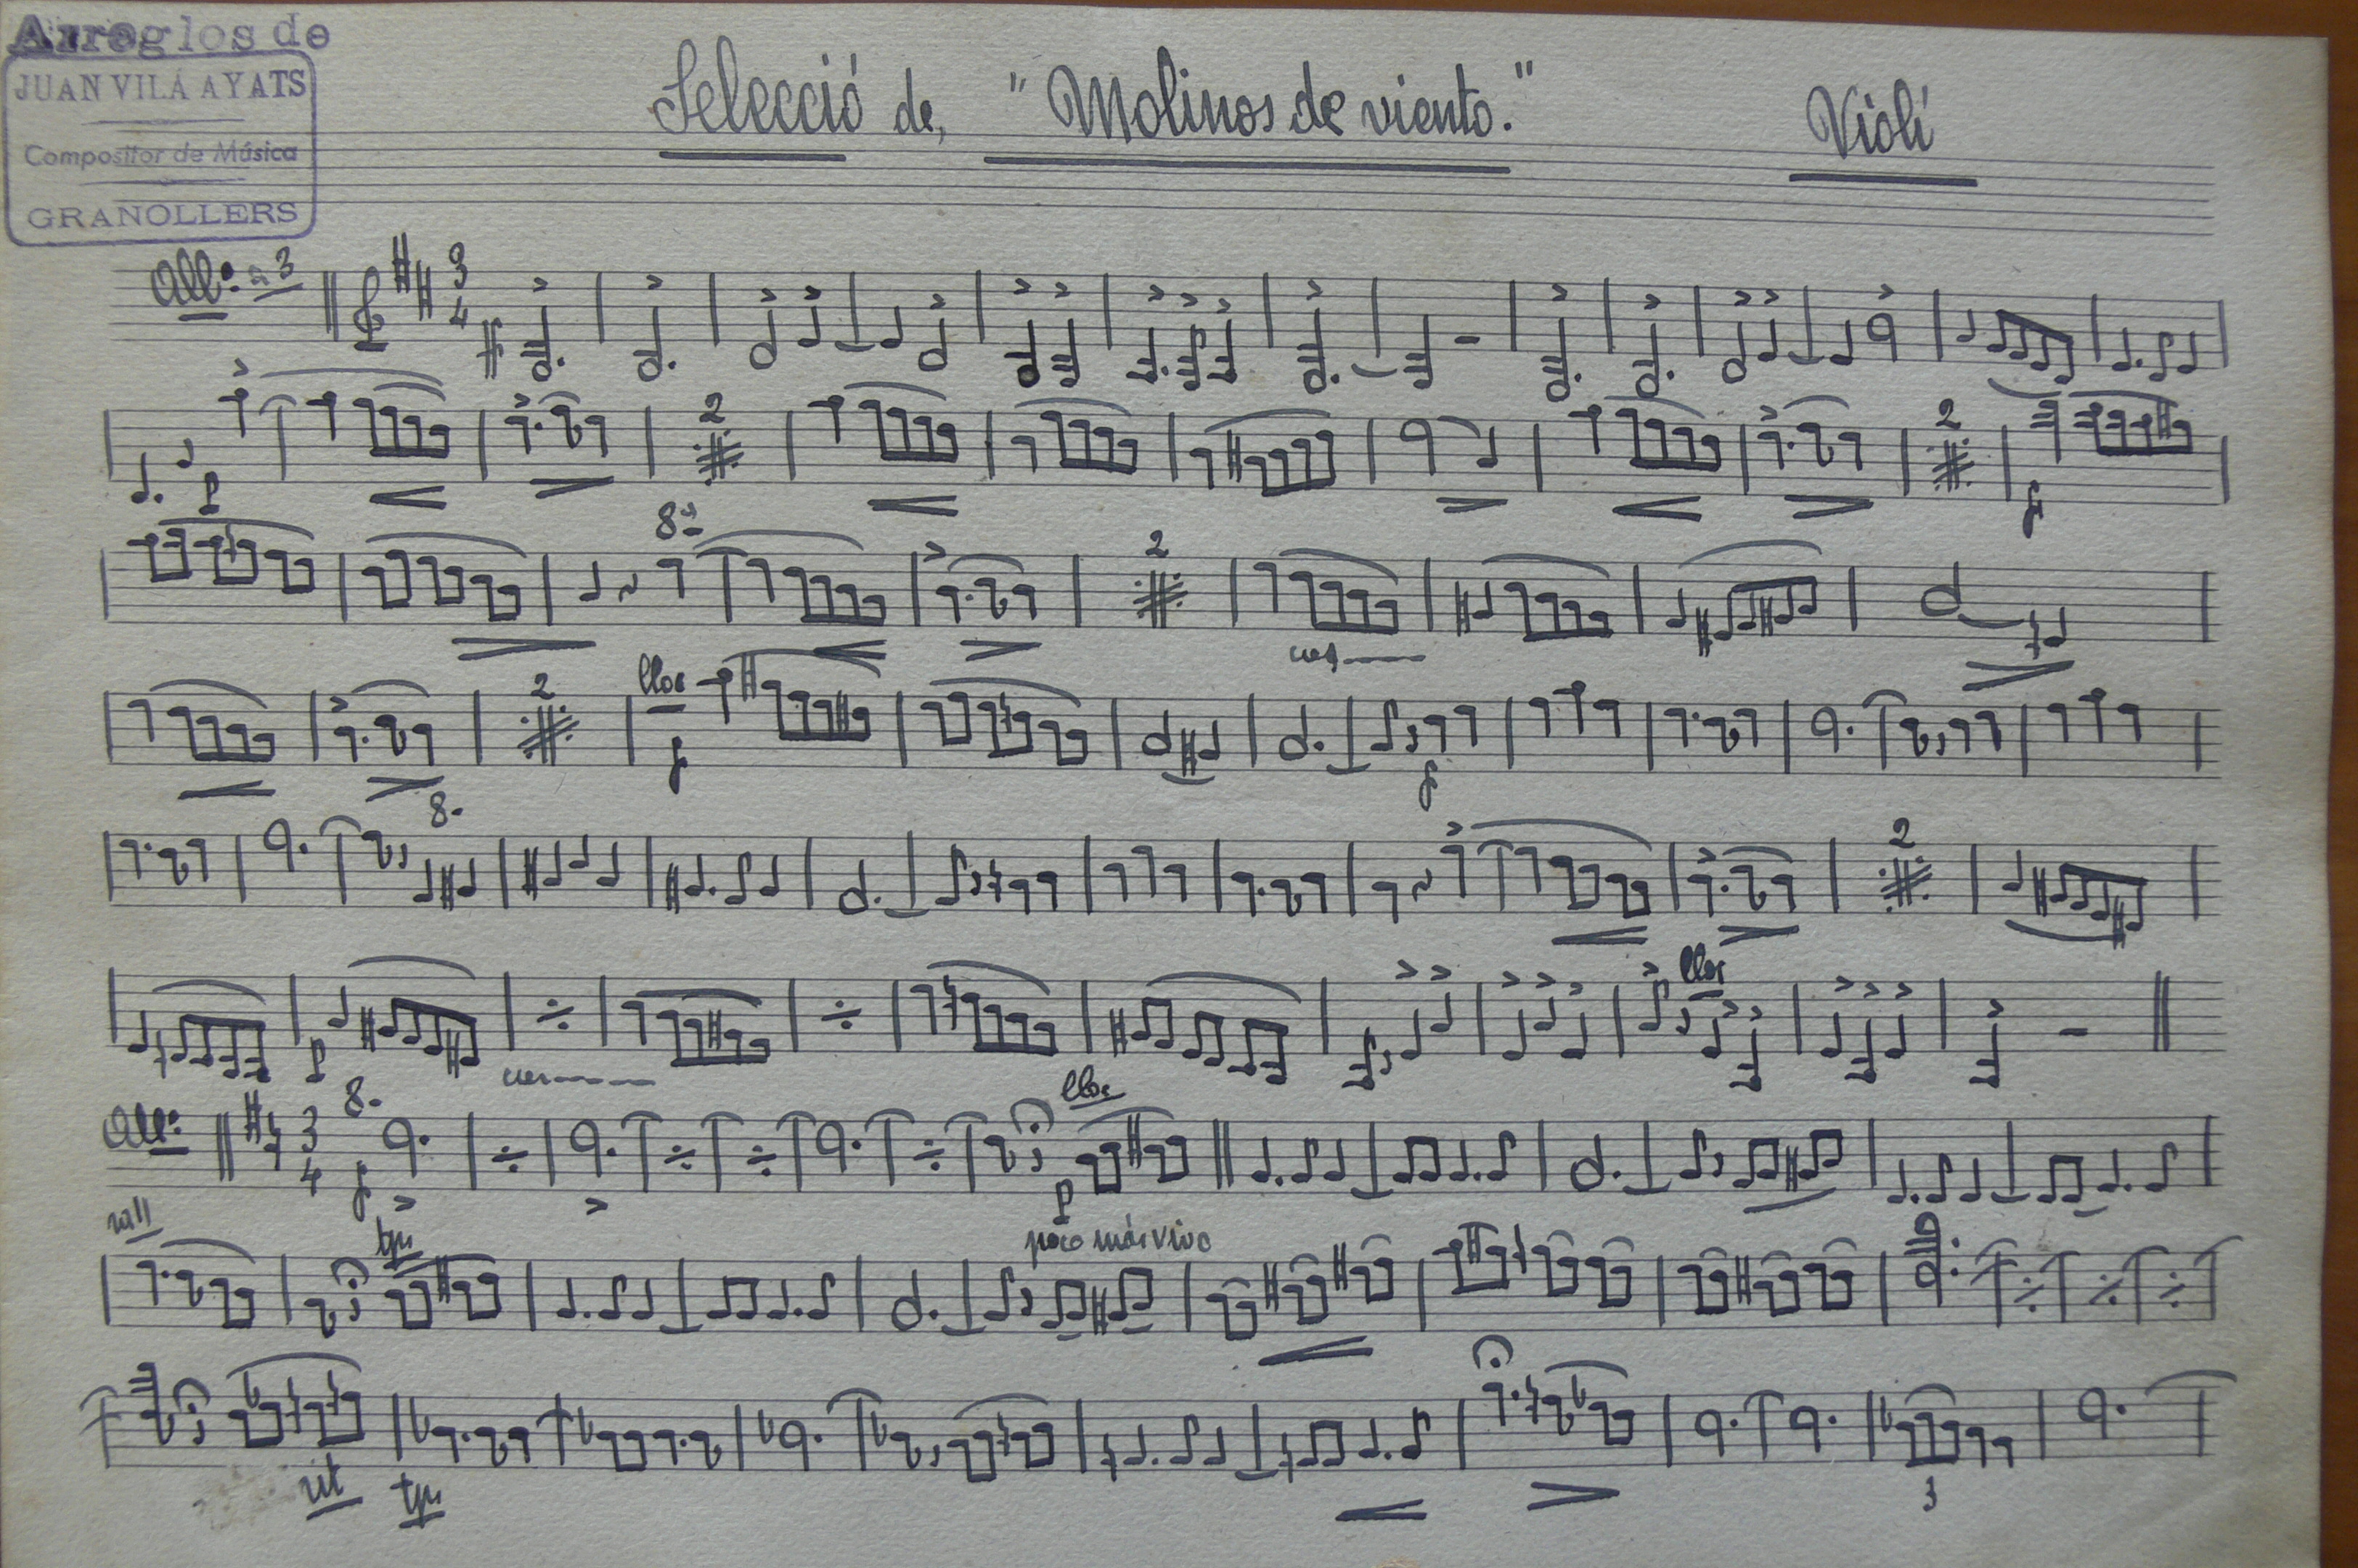 Arreglos de
JUAN VILÁ AYATS
Compositor de Música
GRANOLLERS
Selecció de, "Molinos de viento." Violí
All.º a 3
3
4
2
2
p
f
8ª
2
cres
lloc
2
f
f
8.
2
lloc
p
cres
All.º
3
4
8.
f
lloc
p
rall
tpº
poco más vivo
rit
tpº
3